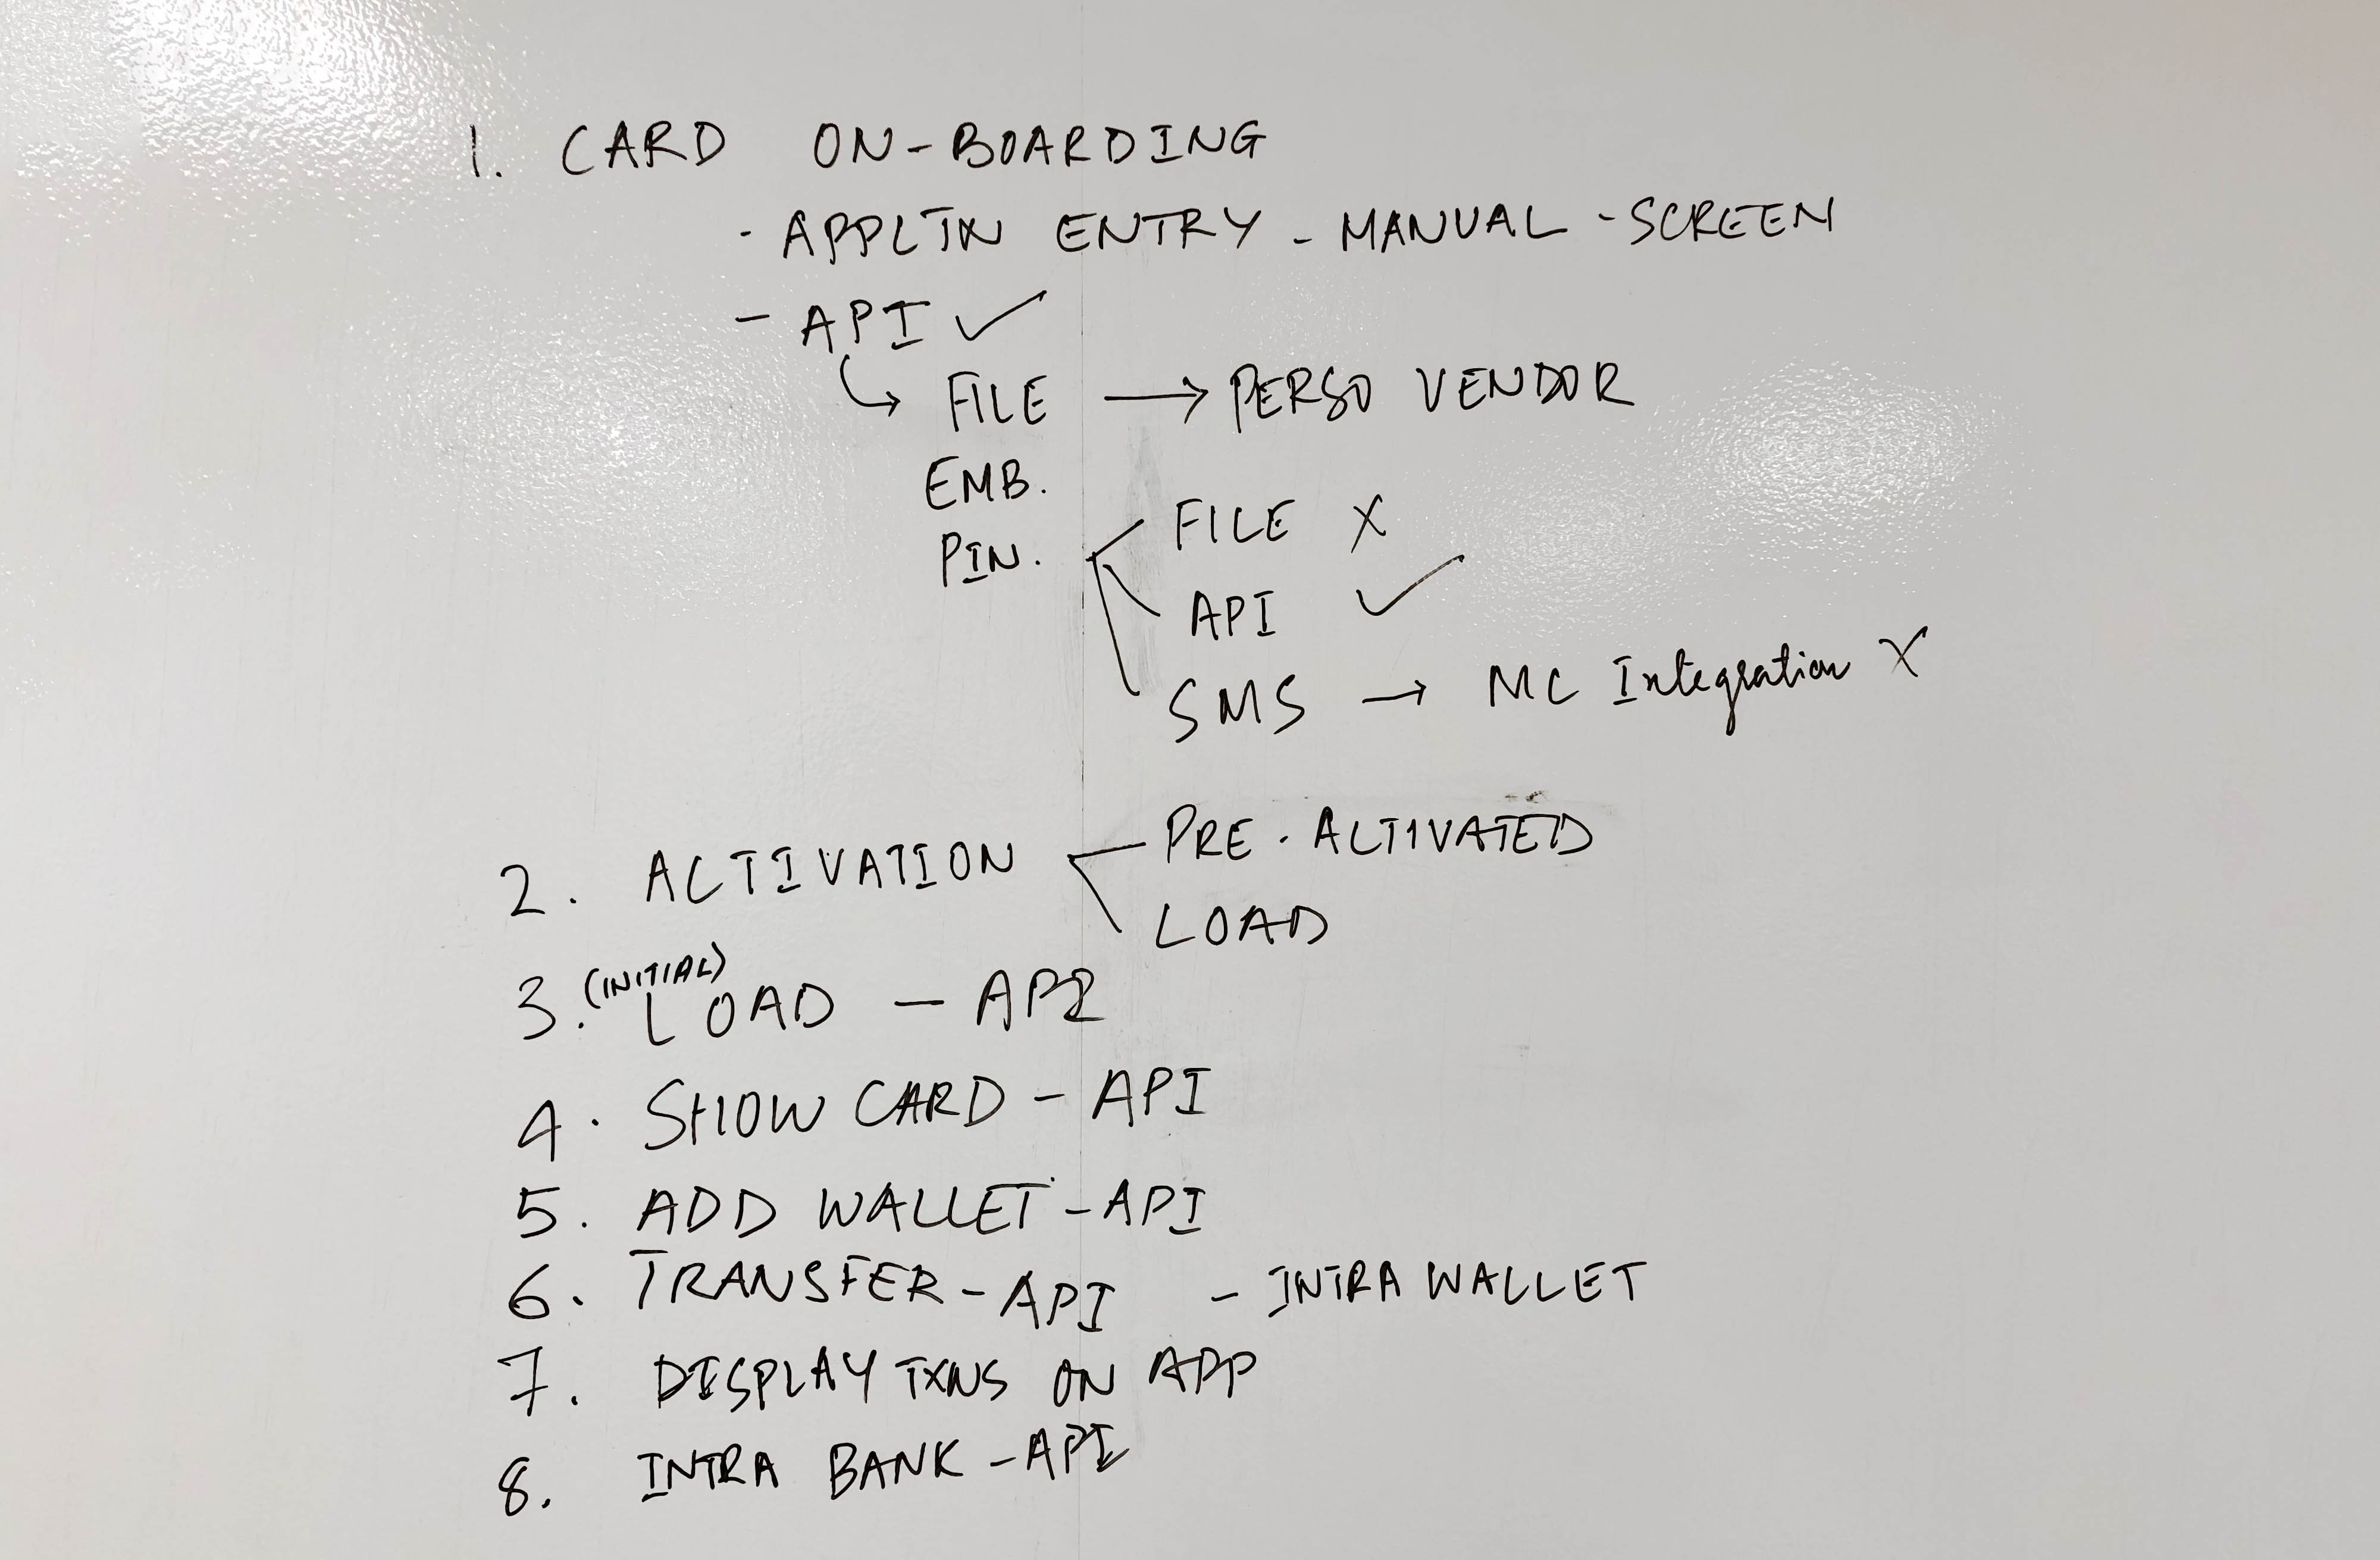 1. CARD ON-BOARDING
- APPLTN ENTRY - MANUAL - SCREEN
- API ✓
↳ FILE → PERSO VENDOR
EMB.
PIN.
FILE X
API ✓
SMS → MC Integration X
2. ACTIVATION
PRE-ACTIVATED
LOAD
3. (INITIAL) LOAD - API
4. SHOW CARD - API
5. ADD WALLET - API
6. TRANSFER - API - INTRA WALLET
7. DISPLAY TXNS ON APP
8. INTRA BANK - API